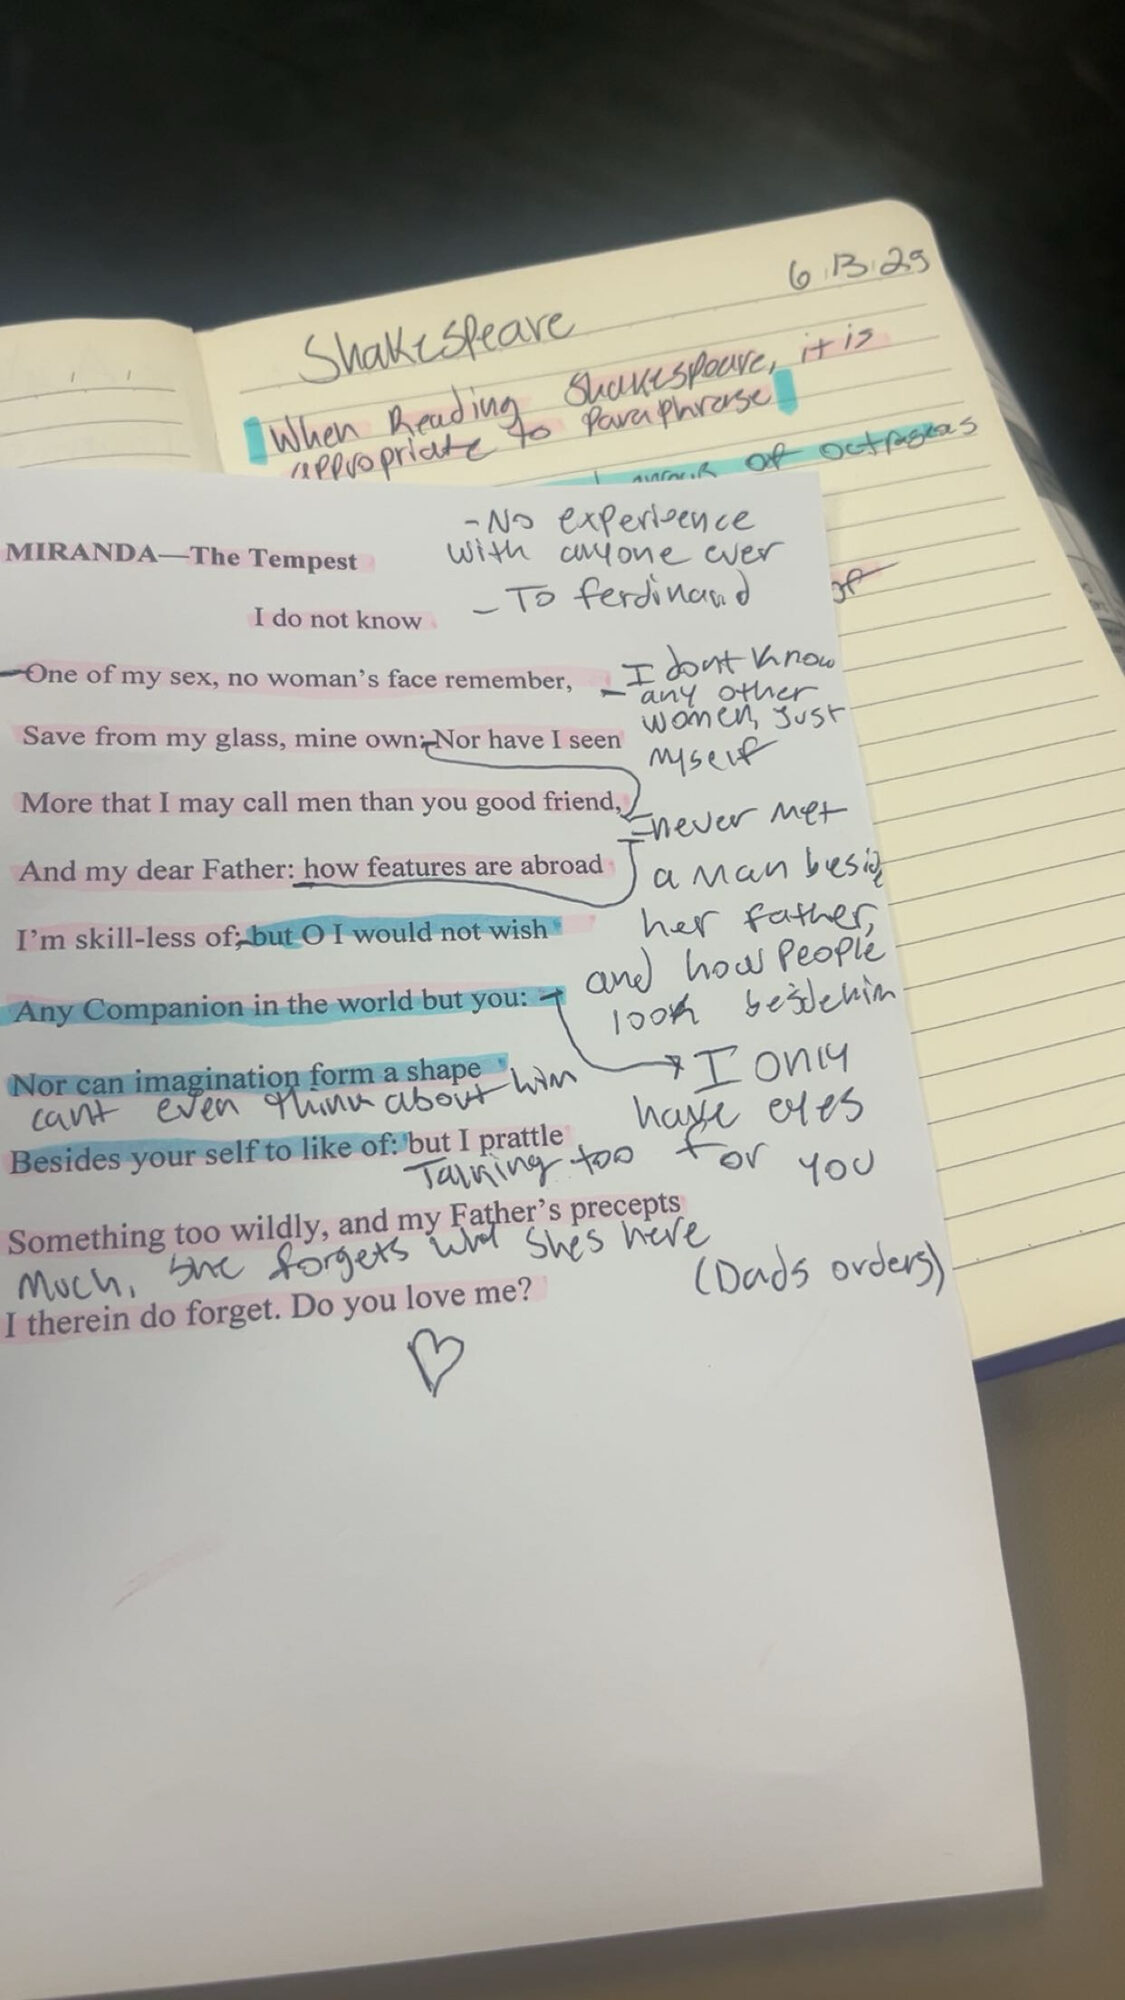 6.13.25
Shakespeare
When Reading Shakespeare, it is
appropriate to Paraphrase
of octaves
of
MIRANDA—The Tempest
-No experieence
with anyone ever
- To ferdinand
I do not know
One of my sex, no woman's face remember,
- I dont know
any other
women, just
myself
Save from my glass, mine own; Nor have I seen
More that I may call men than you good friend,
-never met
a man beside
her father,
and how People
look besidehim
And my dear Father: how features are abroad
I'm skill-less of; but O I would not wish
Any Companion in the world but you:
I only
have eyes
for you
Nor can imagination form a shape
cant even think about him
Besides your self to like of: but I prattle
Talking too
Something too wildly, and my Father's precepts
Much, she forgets what shes here
(Dads orders)
I therein do forget. Do you love me?